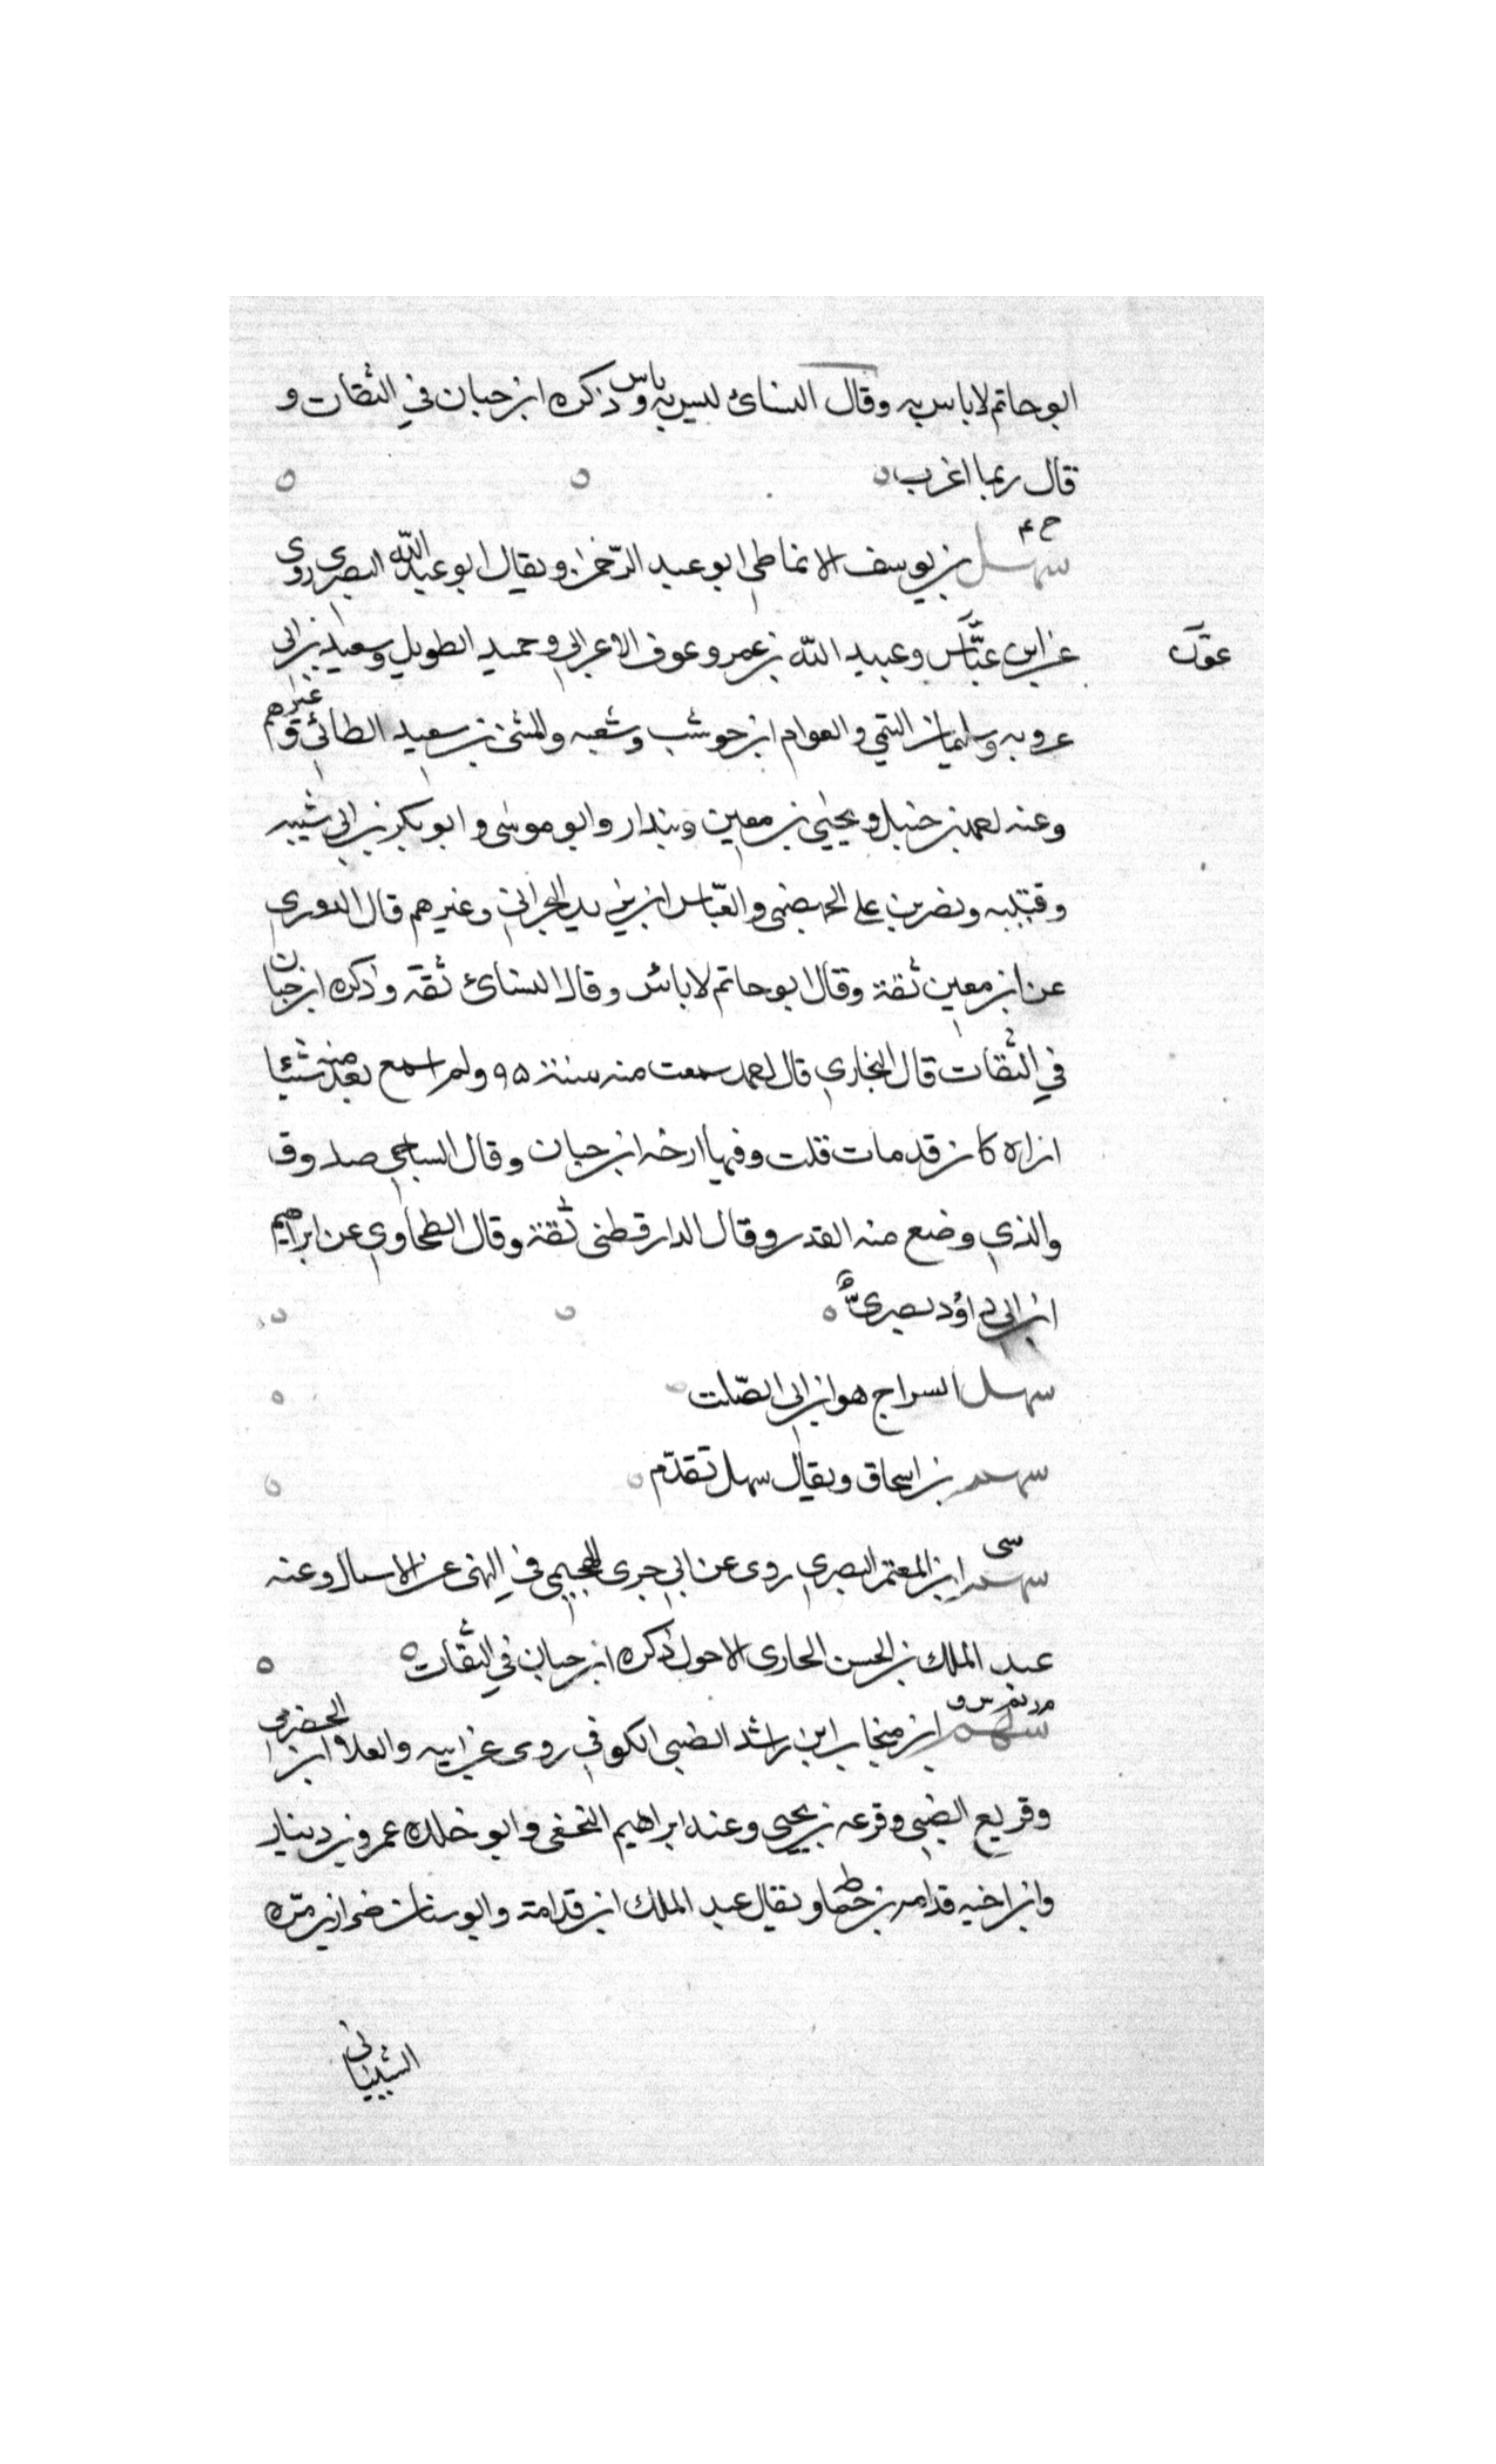 ابو حاتم لا باس به وقال النسائ ليس به باس وذكره ابن حبان في الثقات و
قال ربما اغرب
خ ٤
سهل بن يوسف الانماطي ابو عبد الرحمن ويقال ابو عبد الله البصري روى
عن ابن عباس وعبيد الله بن عمر وعوف الاعرابي وحميد الطويل وسعيد بن ابي
عون
عروبه وسليمان التيمي والعوام ابن حوشب وشعبه والمثنى بن سعيد الطائي وغيرهم
وعنه احمد بن حنبل ويحيى بن معين وبندار وابو موسى وابو بكر بن ابي شيبه
وقتيبه ونصر بن علي الجهضمي والعباس ابن يزيد البحراني وغيرهم قال الدوري
عن ابن معين ثقة وقال ابو حاتم لا باس وقال النسائ ثقة وذكره ابن حبان
في الثقات قال البخاري قال احمد سمعت منه سنة ٩٥ ولم اسمع بعد منه شيئا
ان اراه كان قد مات قلت وفيها ارخه ابن حبان وقال الساجي صدوق
والذي وضع منه القدر وقال الدارقطنى ثقة وقال الطحاوي عن ابراهيم
ابن ابي داؤد بصري
سهل السراج هو ابن ابي الصلت
سهم بن اسحاق ويقال سهل تقدم
سي
سهم ابن المعتمر البصري روى عن ابي جرى الهجيمي في النهى عن الاسبال وعنه
عبد الملك بن الحسن الحارى الاحول ذكره ابن حبان في الثقات
سهم ابن منجاب ابن راشد الضبي الكوفي روى عن ابيه والعلا ابن الحضرمي
وقريع الضبي وقزعه بن يحيى وعنه ابراهيم النخعى وابو خلده عمرو بن دينار
وابن اخيه قدامه بن حماطه ويقال عبد الملك ابن قدامة وابو سنان ضرار بن مره
الشيباني